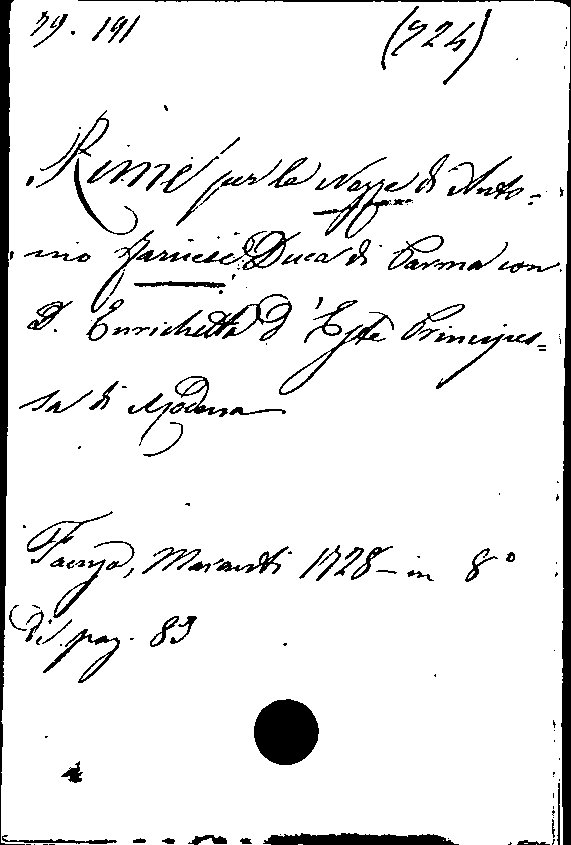 79. 191 (724)
Rime per le Nozze di Anto=
nio Farnese Duca di Parma con
D. Enrichetta d'Este Principes=
sa di Modena
Faenza, Maranti 1728 - in 8°
di pag. 83